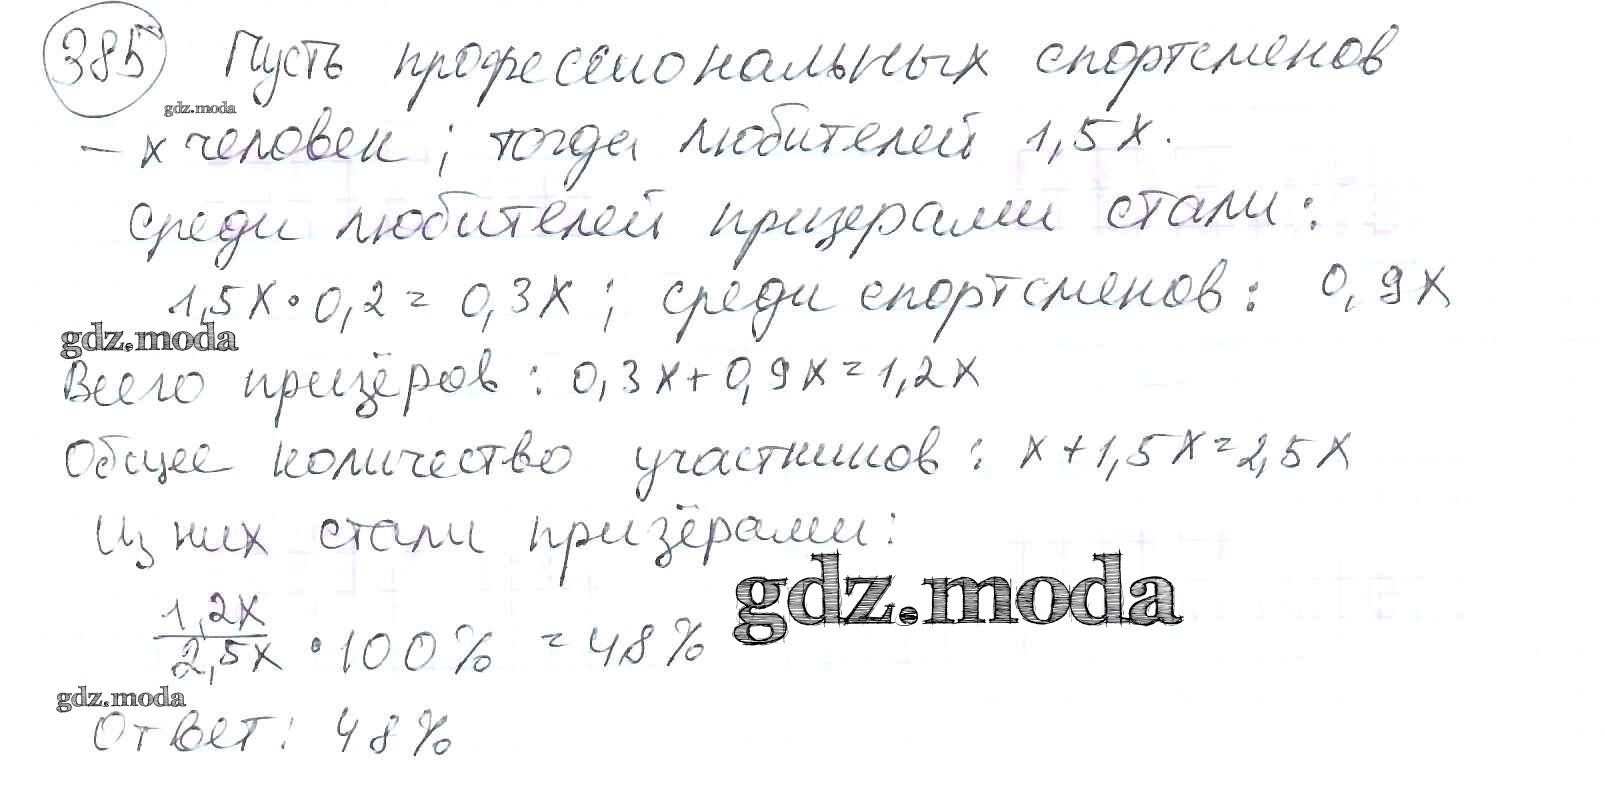 385 Пусть профессиональных спортсменов
gdz.moda
– x человек; тогда любителей 1,5x.
Среди любителей призерами стали:
1,5x · 0,2 = 0,3x; среди спортсменов: 0,9x
gdz.moda
Всего призёров: 0,3x + 0,9x = 1,2x
Общее количество участников: x + 1,5x = 2,5x
Из них стали призёрами:
gdz.moda
1,2x/2,5x · 100% = 48%
gdz.moda
Ответ: 48%